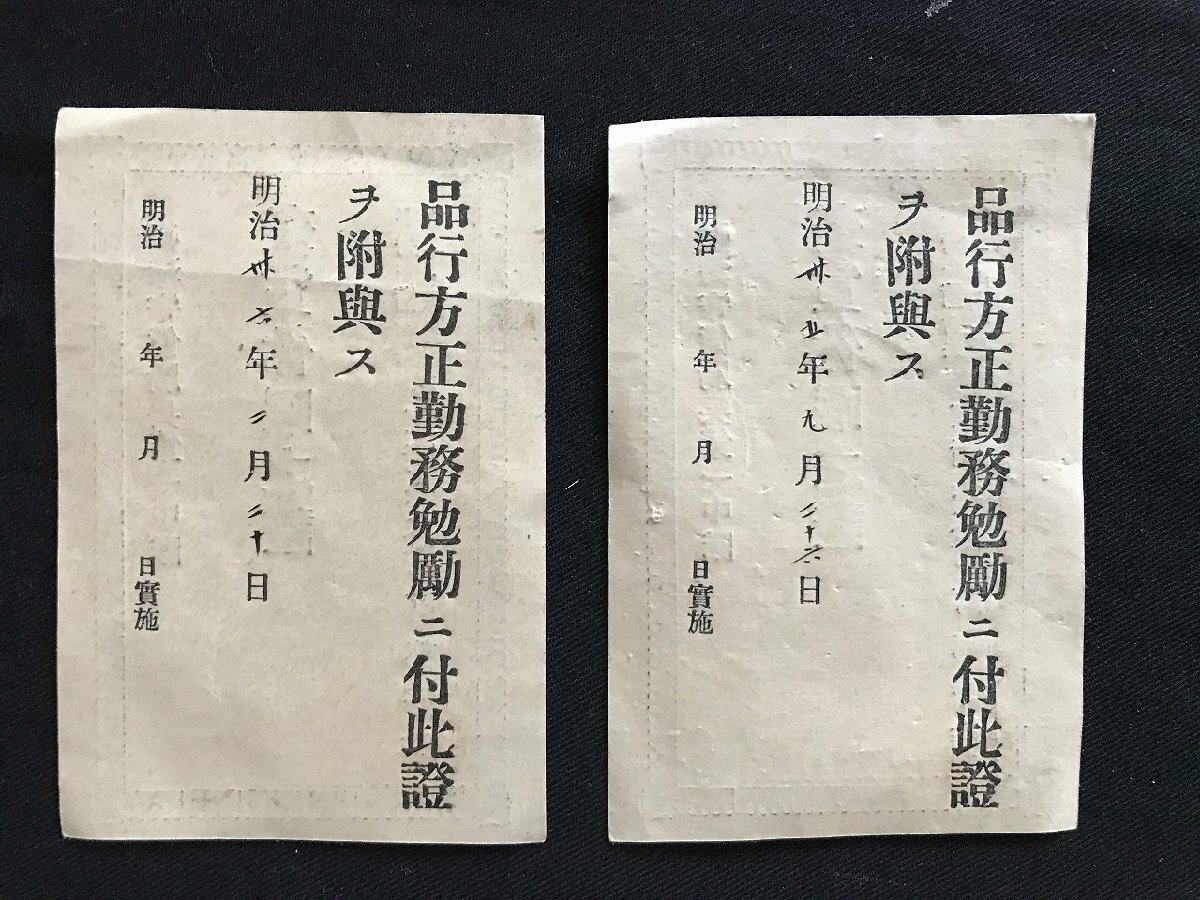 品行方正勤務勉勵ニ付此證
ヲ附與ス
明治卅五年九月二十六日
明治 年 月 日實施
品行方正勤務勉勵ニ付此證
ヲ附與ス
明治卅六年二月二十日
明治 年 月 日實施